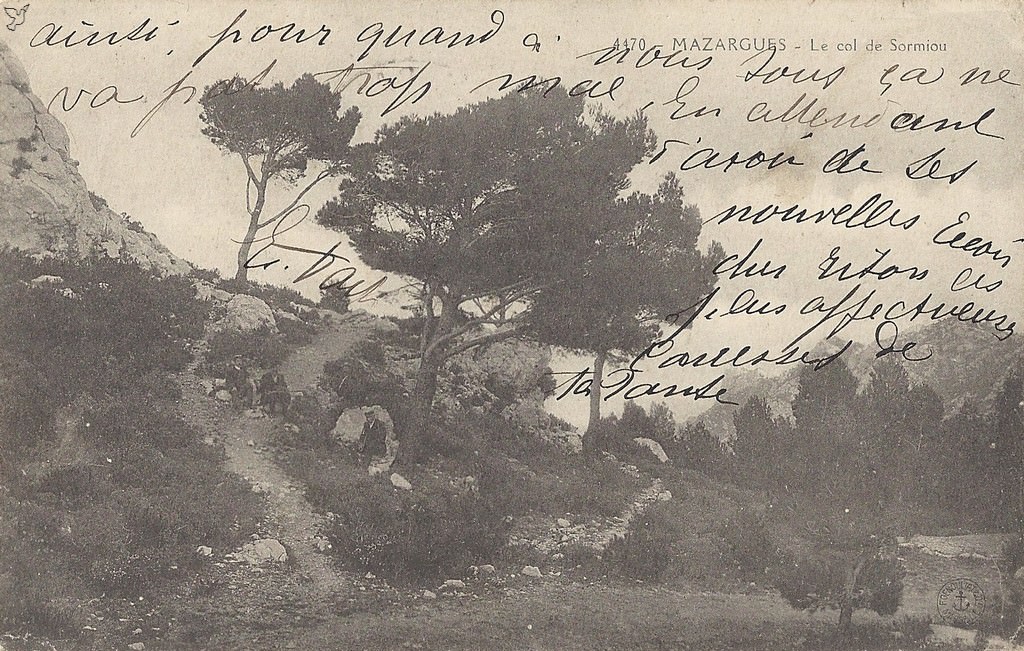 4470 - MAZARGUES - Le col de Sormiou
ainsi, pour quand à nous tous ça ne
va pas trop mal, En attendant
d'avoir de tes
nouvelles
cher
plus affectueuses
caresses de
ta Tante